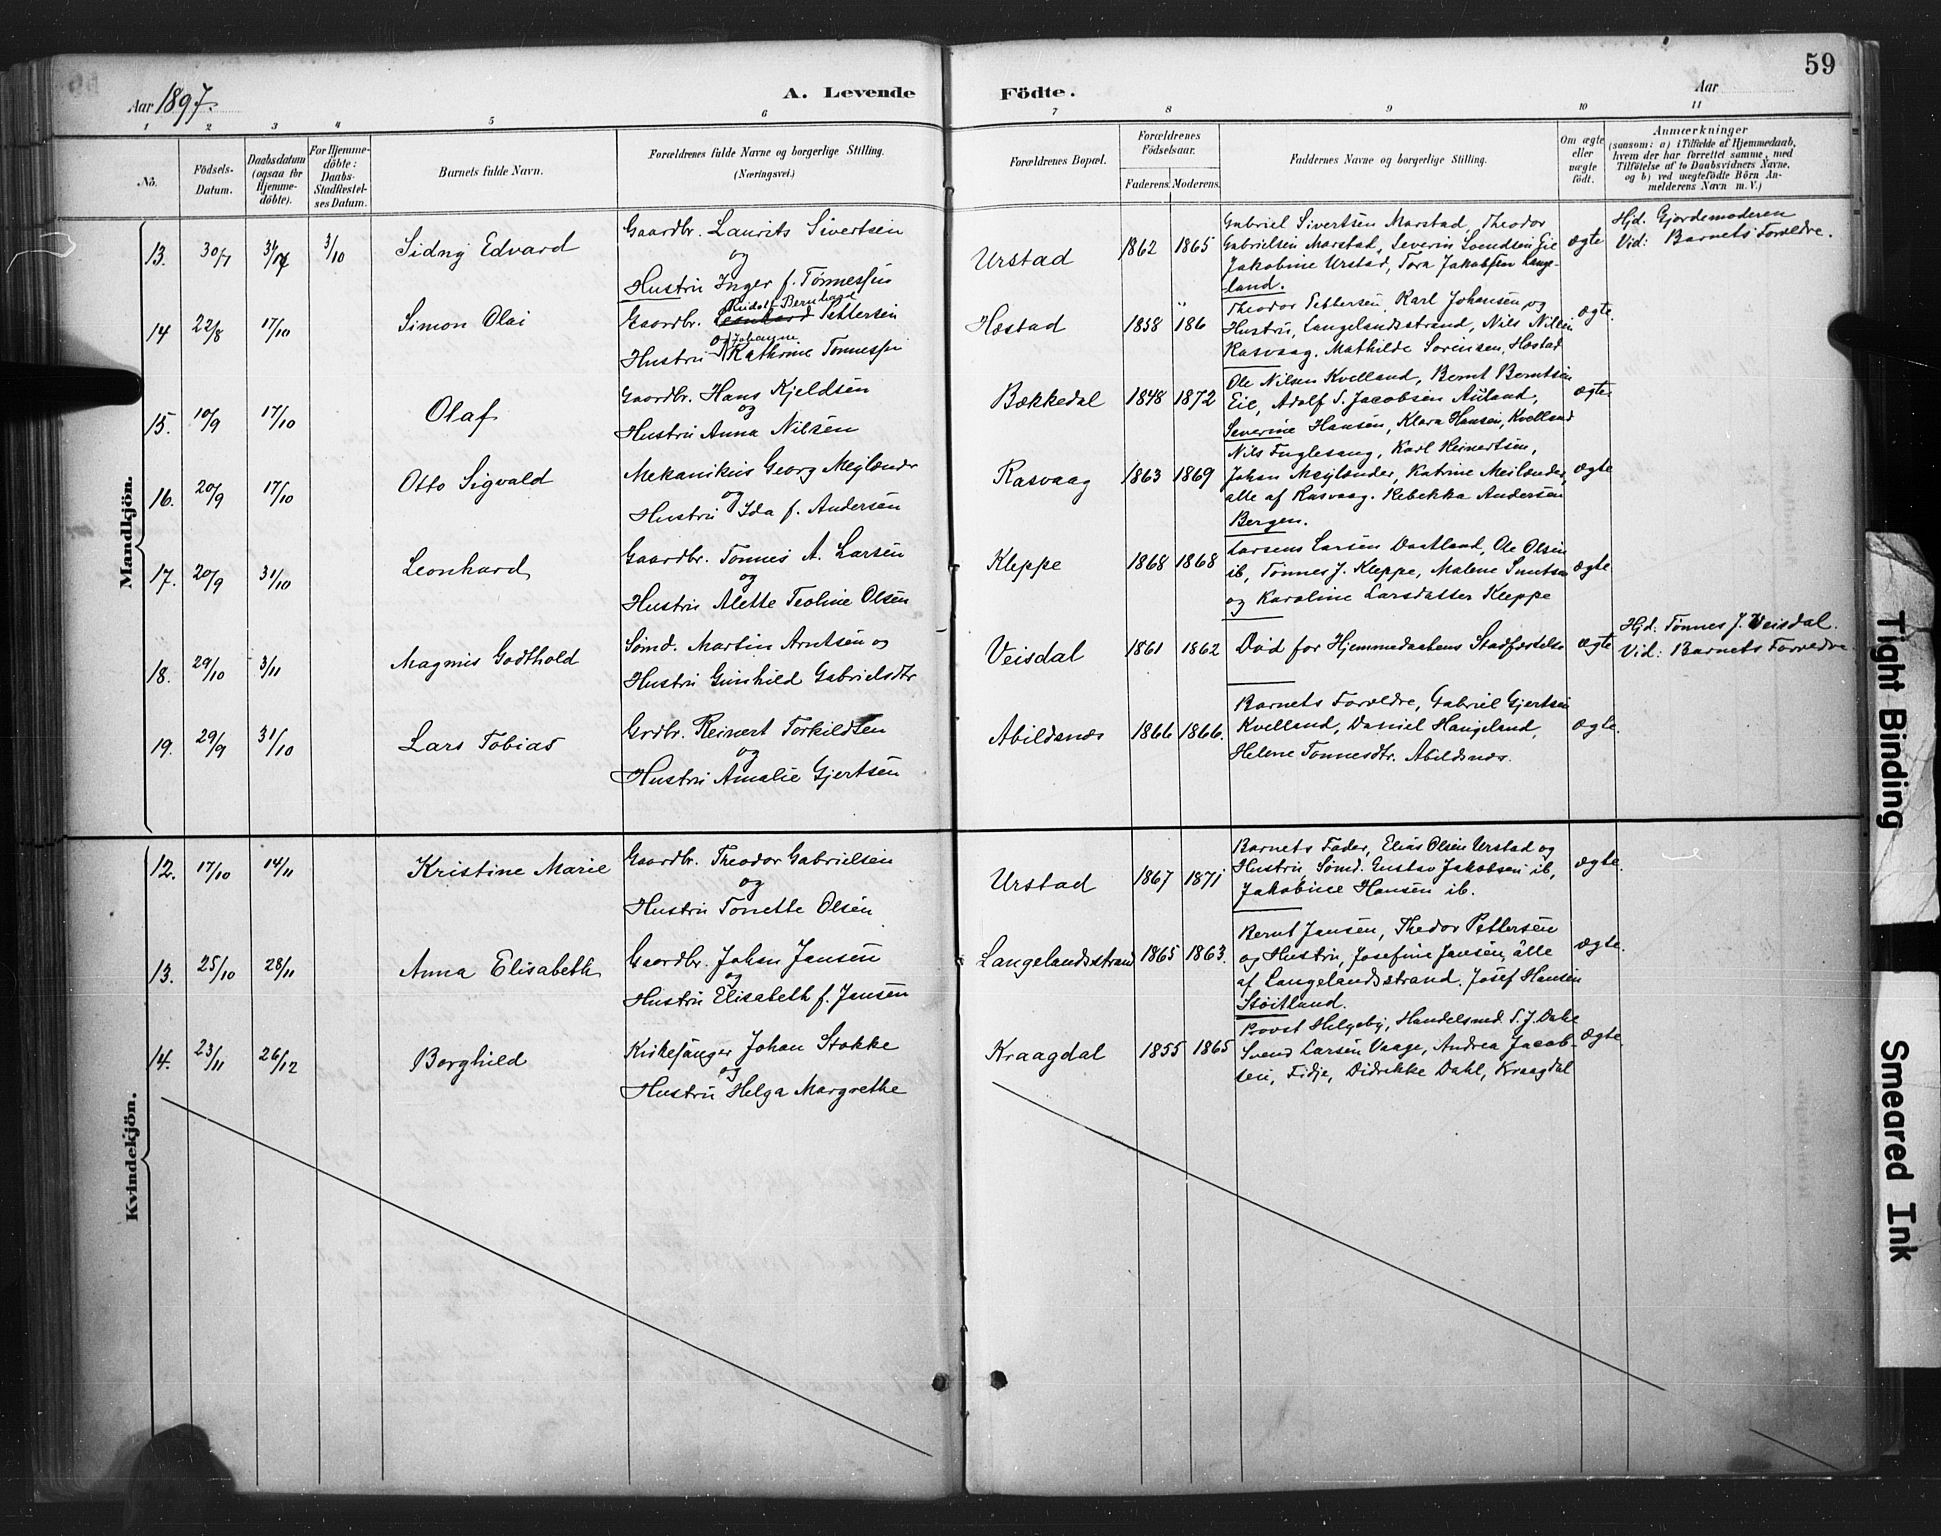 59
Aar 1897.
A. Levende Födte.
Aar
1 2 3 4 5 6 7 8 9 10 11
No.
Födsels-Datum.
Daabsdatum (ogsaa for Hjemme-döbte).
For Hjemme-döbte: Daabs-Stadfæstel-ses Datum.
Barnets fulde Navn.
Forældrenes fulde Navne og borgerlige Stilling.
(Næringsvei.)
Forældrenes Bopæl.
Forældrenes Födselsaar.
Faderens. Moderens.
Faddernes Navne og borgerlige Stilling.
Om ægte eller uægte födt.
Anmærkninger
(saasom: a) i Tilfælde af Hjemmedaab,
hvem der har forrettet samme, med
Tilföielse af to Daabsvidners Navne,
og b) ved uægtefödte Börn An-
melderens Navn m. V.)
Mandkjön.
13. 30/7 3/10 Sidny Edvard
Gaardbr. Laurits Sivertsen
og
Hustru Inger f. Tönnessen
Urstad 1862 1865
Gabriel Sivertsen Marstad, Theodor
Gabrielsen Marstad, Severin Svendsen Eie
Jakobine Urstad, Tora Jakobsen Lange-
land.
ægte
Hjd. Gjordemoderen
Vid: Barnets Forældre.
14 22/8 17/10 Simon Olai
Rudolf Bernhard
Gaardbr. Leonhard Pettersen
og Johanne
Hustru Kathrine Tönnessen
Hæstad 1858 186
Theodor Pettersen, Karl Johansen og
Hustru, Langelandsstrand, Nils Nilsen
Rasvaag. Mathilde Sörensen, Hæstad
ægte.
15. 10/9 17/10 Olaf
Gaardbr. Hans Kjeldsen
og
Hustru Anna Nilsen
Bækkedal 1848 1872
Ole Nilsen Kvelland, Bernt Berntsen
Eie, Adolf S. Jacobsen Auland,
Severine Hansen, Klara Hansen, Kvelland
ægte
16. 20/9 17/10 Otto Sigvald
Mekanikus Georg Meylænder
og
Hustru Ida f. Andersen
Rasvaag 1863 1869
Nils Fuglesang, Karl Reinertsen,
Johan Meylænder, Katrine Meilænder,
alle af Rasvaag. Rebekka Andersen
Bergen.
ægte
17. 20/9 31/10 Leonhard
Gaardbr. Tönnes A. Larsen
og
Hustru Alette Teoline Olsen
Kleppe 1868 1868
Larsen Daatland, Ole Olsen
ib, Tönnes J. Kleppe, Malene
og Karoline Larsdatter Kleppe
ægte
18. 29/10 3/11 Magnus Godthold
Sömd. Martin Arntsen og
Hustru Gunhild Gabrielsdtr
Veisdal 1861 1862
Död for Hjemmedaabens Stadfæstelse
ægte
Hjd: Tönnes J. Veisdal.
Vid: Barnets Forældre.
19. 29/9 31/10 Lars Tobias
Grdbr. Reinert Torkildsen
og
Hustru Amalie Gjertsen
Abildsnæs 1866 1866.
Barnets Forældre, Gabriel Gjertsen
Kvelland, Daniel Haugeland,
Helene Tönnesdtr. Abildsnæs.
ægte.
Kvindekjön.
12. 17/10 14/11 Kristine Marie
Gaardbr. Theodor Gabrielsen
og
Hustru Tonette Olsen
Urstad 1867 1871
Barnets Fader, Elias Olsen Urstad og
Hustru, Sömd. Gustav Jakobsen ib,
Jakobine Hansen ib.
ægte.
13. 25/10 28/11 Anna Elisabeth
Gaardbr. Johan Jansen
og
Hustru Elisabeth f. Jansen
Langelandsstrand 1865 1863.
Bernt Jansen, Thedor Pettersen
og Hustru, Josefine Jansen, alle
af Langelandsstrand. Josef Hansen
Stöitland.
ægte.
14. 23/11 26/12 Borghild
Kirkesanger Johan Stokke
og
Hustru Helga Margrethe
Kraagdal 1855 1865
Provst Helgeby, Handelsmd. S. J. Dahl
Svend Larsen Vaage, Andrea Jacob-
sen, Fidje, Didrikke Dahl, Kraagdal
ægte.
Tight Binding
Smeared Ink